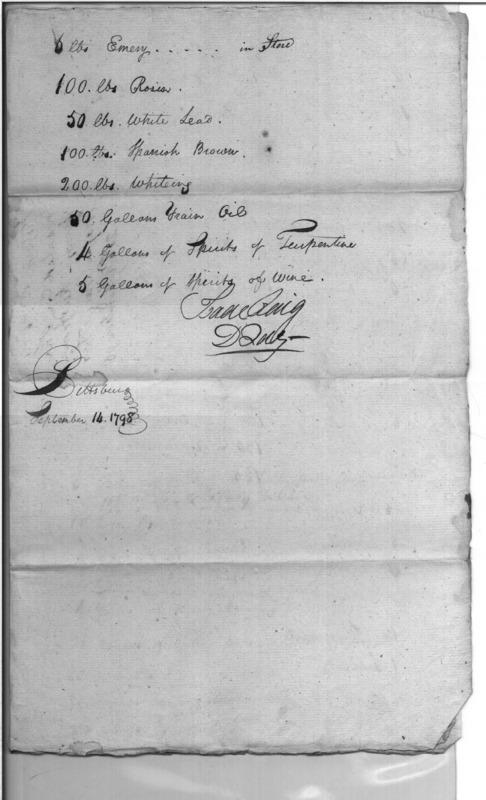 6 lbs Emery . . . . . in Store
100. lbs Rosin.
50 lbs. White Lead.
100. lbs. Spanish Brown.
200. lbs. Whiteing
50. Gallons Train Oil
4 Gallons of Spirits of Turpentine
5 Gallons of Spirits of Wine.
Isaac Craig
D Q M
Pittsburg
September 14. 1798